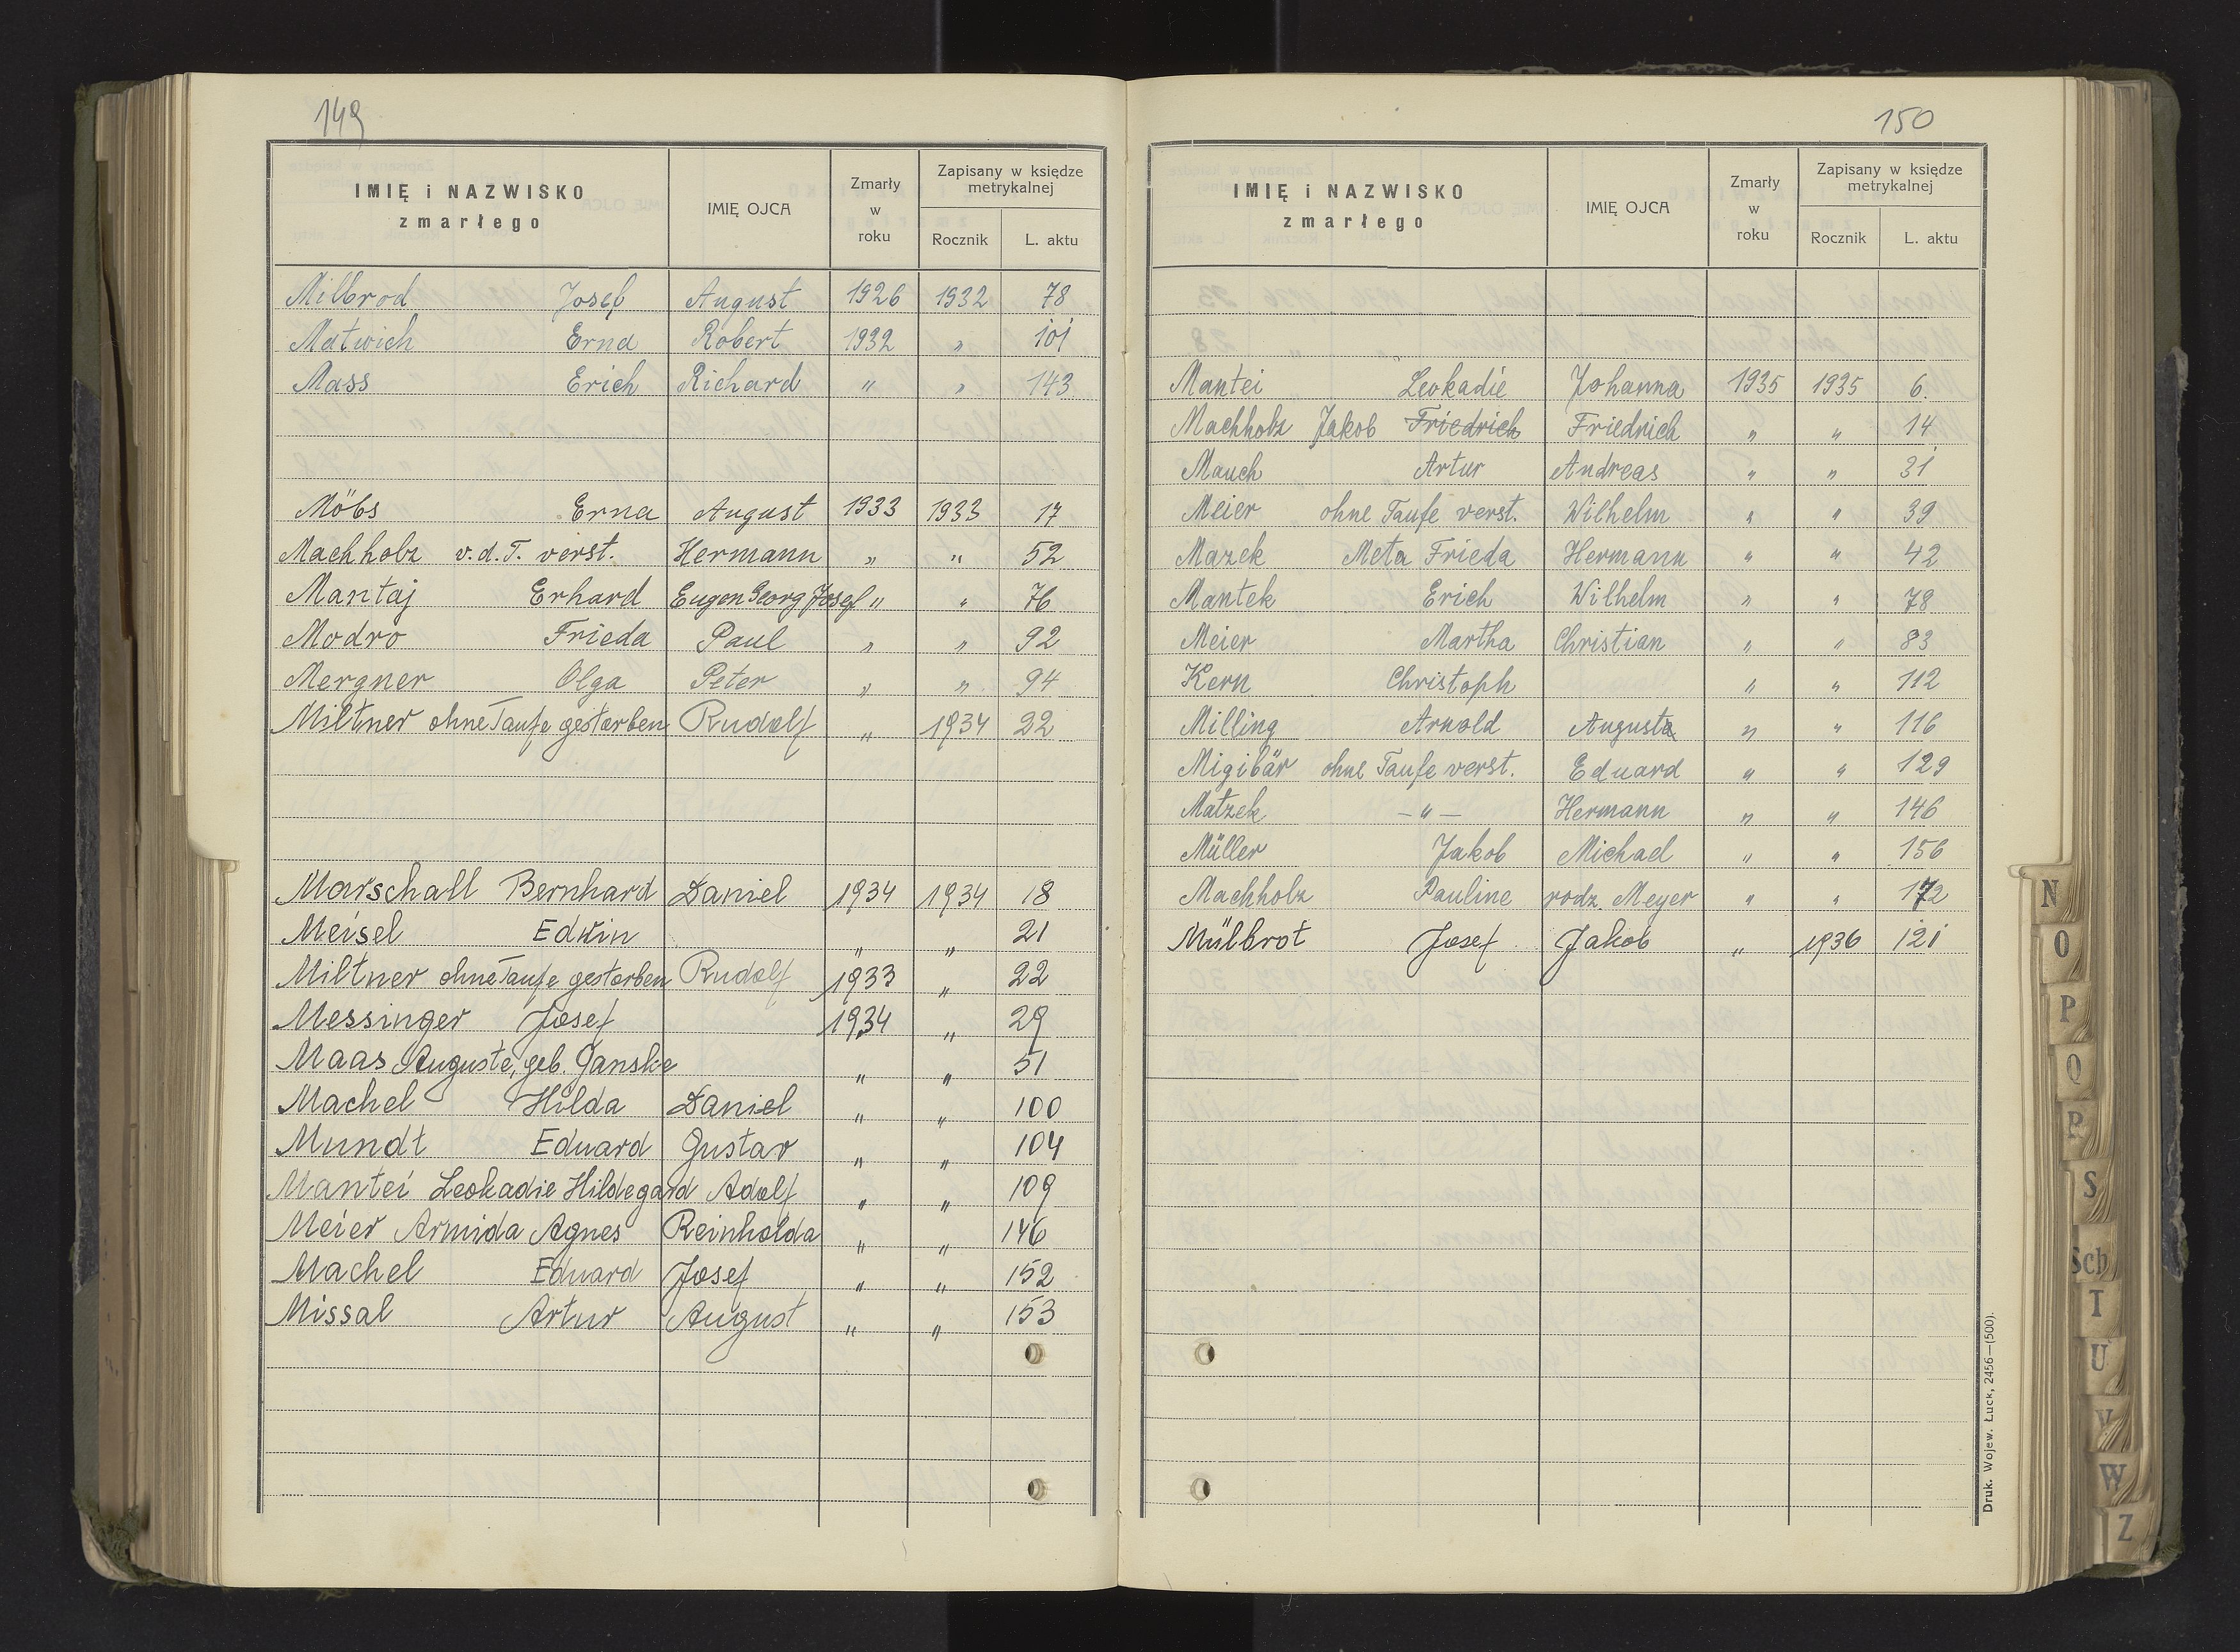 149
IMIĘ i NAZWISKO zmarłego | IMIĘ OJCA | Zmarły w roku | Zapisany w księdze metrykalnej | Rocznik | L. aktu
Milbrod Josef August 1926 1932 78
Matwich Erna Robert 1932 " 101
Mass Erich Richard " " 143
Möbs Erna August 1933 1933 17
Machholz v. d. T. verst. Hermann " " 52
Mantaj Erhard Eugen Georg Josef " " 76
Modro Frieda Paul " " 92
Mergner Olga Peter " " 94
Miltner ohne Taufe gestorben Rudolf " 1934 22
Marschall Bernhard Daniel 1934 1934 18
Meisel Edwin " " 21
Miltner ohne Taufe gestorben Rudolf 1933 " 22
Messinger Josef 1934 " 29
Maas Auguste, geb. Ganske " " 51
Machel Hilda Daniel " " 100
Mundt Eduard Gustav " " 104
Mantei Leokadie Hildegard Adolf " " 109
Meier Armida Agnes Reinholda " " 146
Machel Eduard Josef " " 152
Missal Artur August " " 153
150
IMIĘ i NAZWISKO zmarłego | IMIĘ OJCA | Zmarły w roku | Zapisany w księdze metrykalnej | Rocznik | L. aktu
Mantei Leokadie Johanna 1935 1935 6.
Machholz Jakob Friedrich Friedrich " " 14
Mauch Artur Andreas " " 31
Meier ohne Taufe verst. Wilhelm " " 39
Mazek Meta Frieda Hermann " " 42
Mantek Erich Wilhelm " " 78
Meier Martha Christian " " 83
Kern Christoph " " 112
Milling Arnold Augusta " " 116
Migibär ohne Taufe verst. Eduard " " 129
Matzek — " — Hermann " " 146
Müller Jakob Michael " " 156
Machholz Pauline rodz. Meyer " " 172
Mülbrot Josef Jakob " 1936 121
Druk. Wojew. Łuck, 2456—(500).
N
O
P
Q
R
S
Sch
T
U
V
W
Z